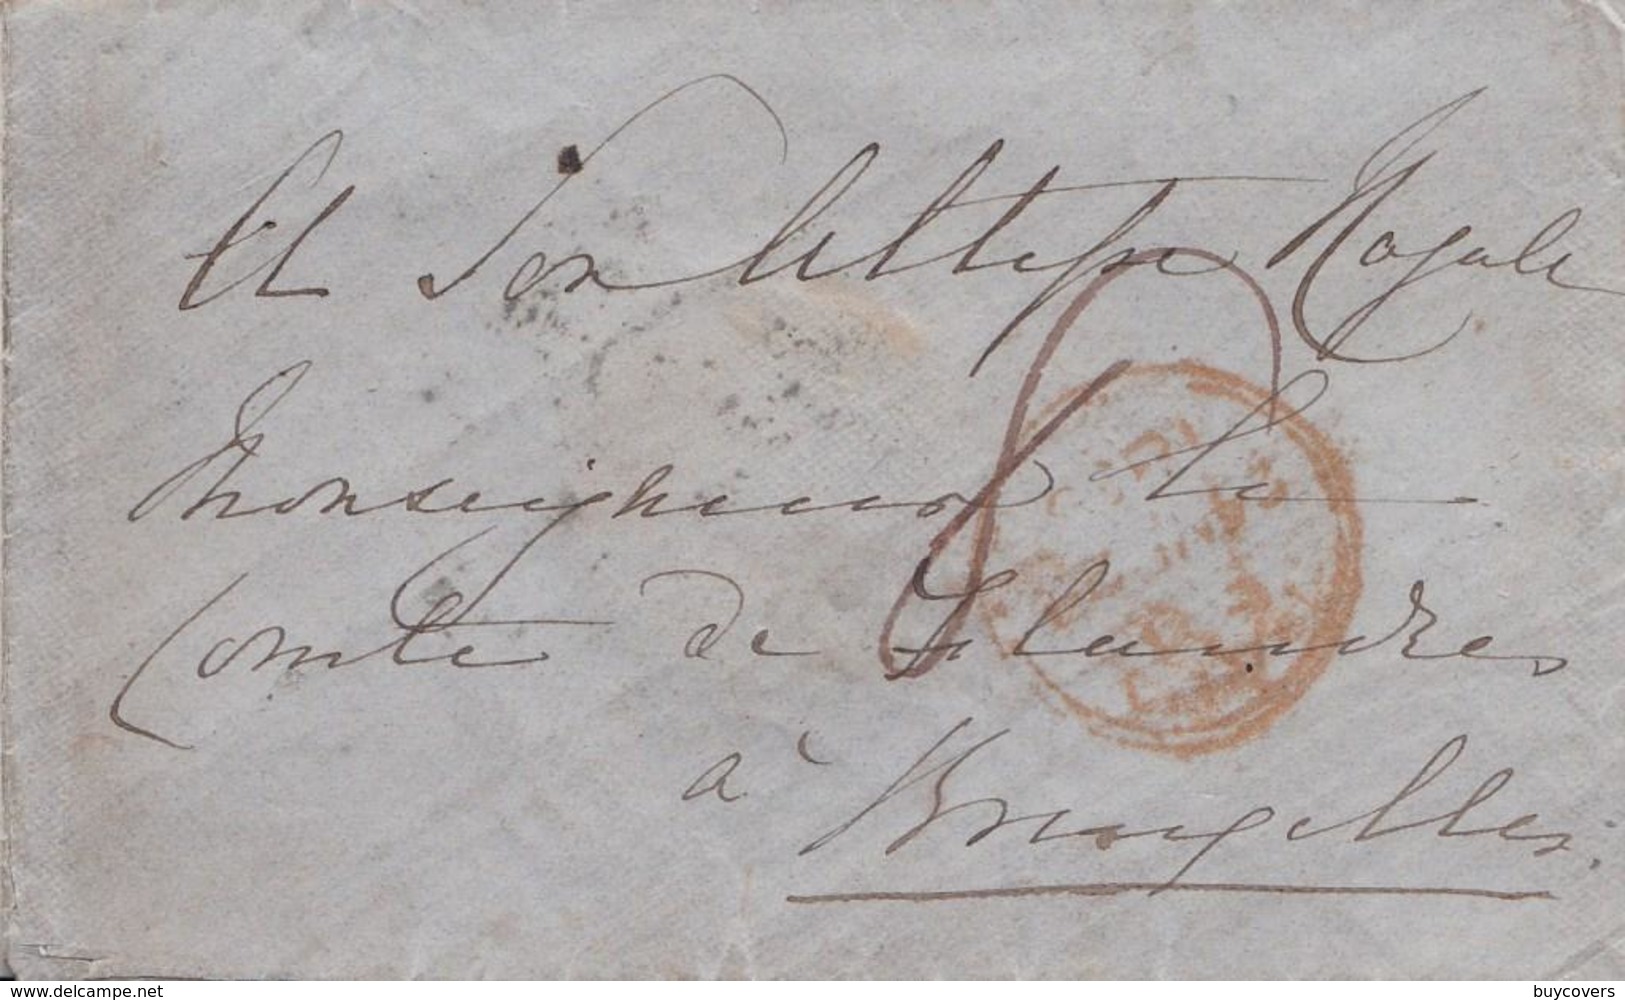 A Son Altesse Royale
Monseigneur le
Comte de Flandres
à Bruxelles.
www.delcampe.net
buycovers